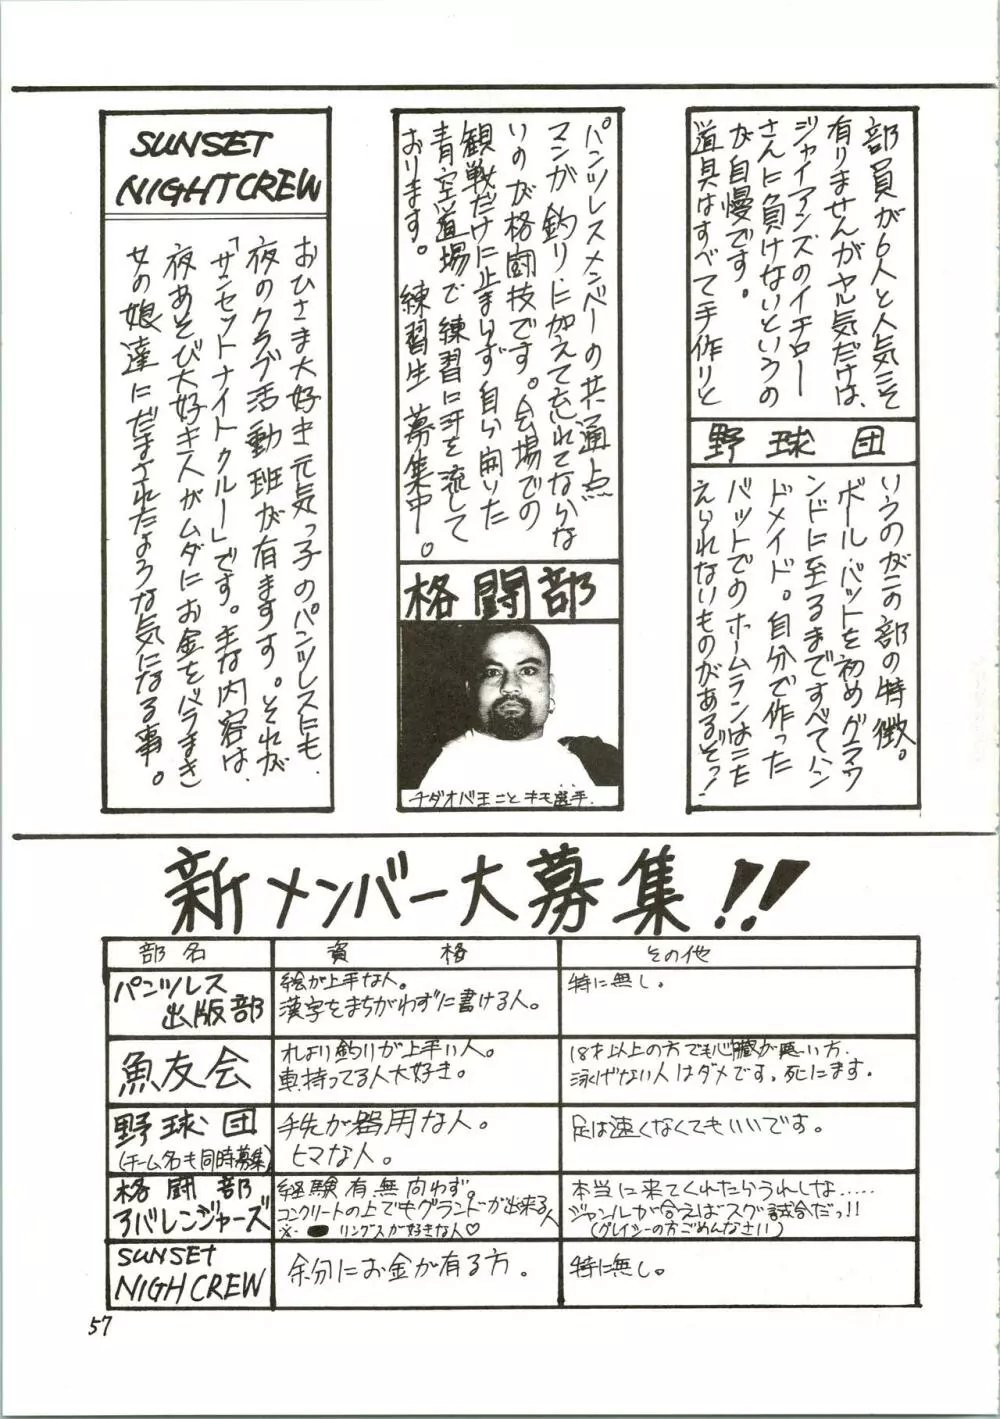 部員が6人と人気こそ
有りませんがヤル気だけは、
ジャイアンズのイチロー
さんに負けないというの
が自慢です。
道具はすべて手作りと
野球団
いうのがこの部の特徴。
ボール、バットを初めグラウ
ンドに至るまですべてハン
ドメイド。自分で作った
バットでのホームランはこた
えられないものがあるぞっ!
パンツレスメンバーの共通点
マンが、釣り、に加えて忘れてならな
いのが格闘技です。会場での
観戦だけに止まらず自ら開いた
青空道場で練習に汗を流して
おります。練習生募集中。
格闘部
チダオバ王ことキモ選手.
SUNSET
NIGHTCREW
おひさま大好き元気っ子のパンツレスにも、
夜のクラブ活動班が有ますす。それが
「サンセットナイトクルー」です。主な内容は、
夜あそび大好き人がムダにお金をバラまき
女の娘達にだまされたような気になる事。
新メンバー大募集!!
部名 資格 その他
パンツレス
出版部
絵が上手な人。
漢字をまちがわずに書ける人。
特に無し.
魚友会
れより釣りが上手い人。
車持ってる人大好き。
18才以上の方でも心臓が悪い方.
泳げない人はダメです。死にます。
野球団
(チーム名も同時募集)
手先が器用な人。
ヒマな人。
足は速くなくてもいいです。
格闘部
アバレンジャーズ
経験有無向わず。
コンクリートの上でもグランドが出来る人
※. リングスが好きな人♡
本当に来てくれたらうれしな.....
ジャンルが合えばスグ試合だっ!!
(グレイシーの方ごめんなさい)
SUNSET
NIGHCREW
余分にお金が有る方.
特に無し。
57